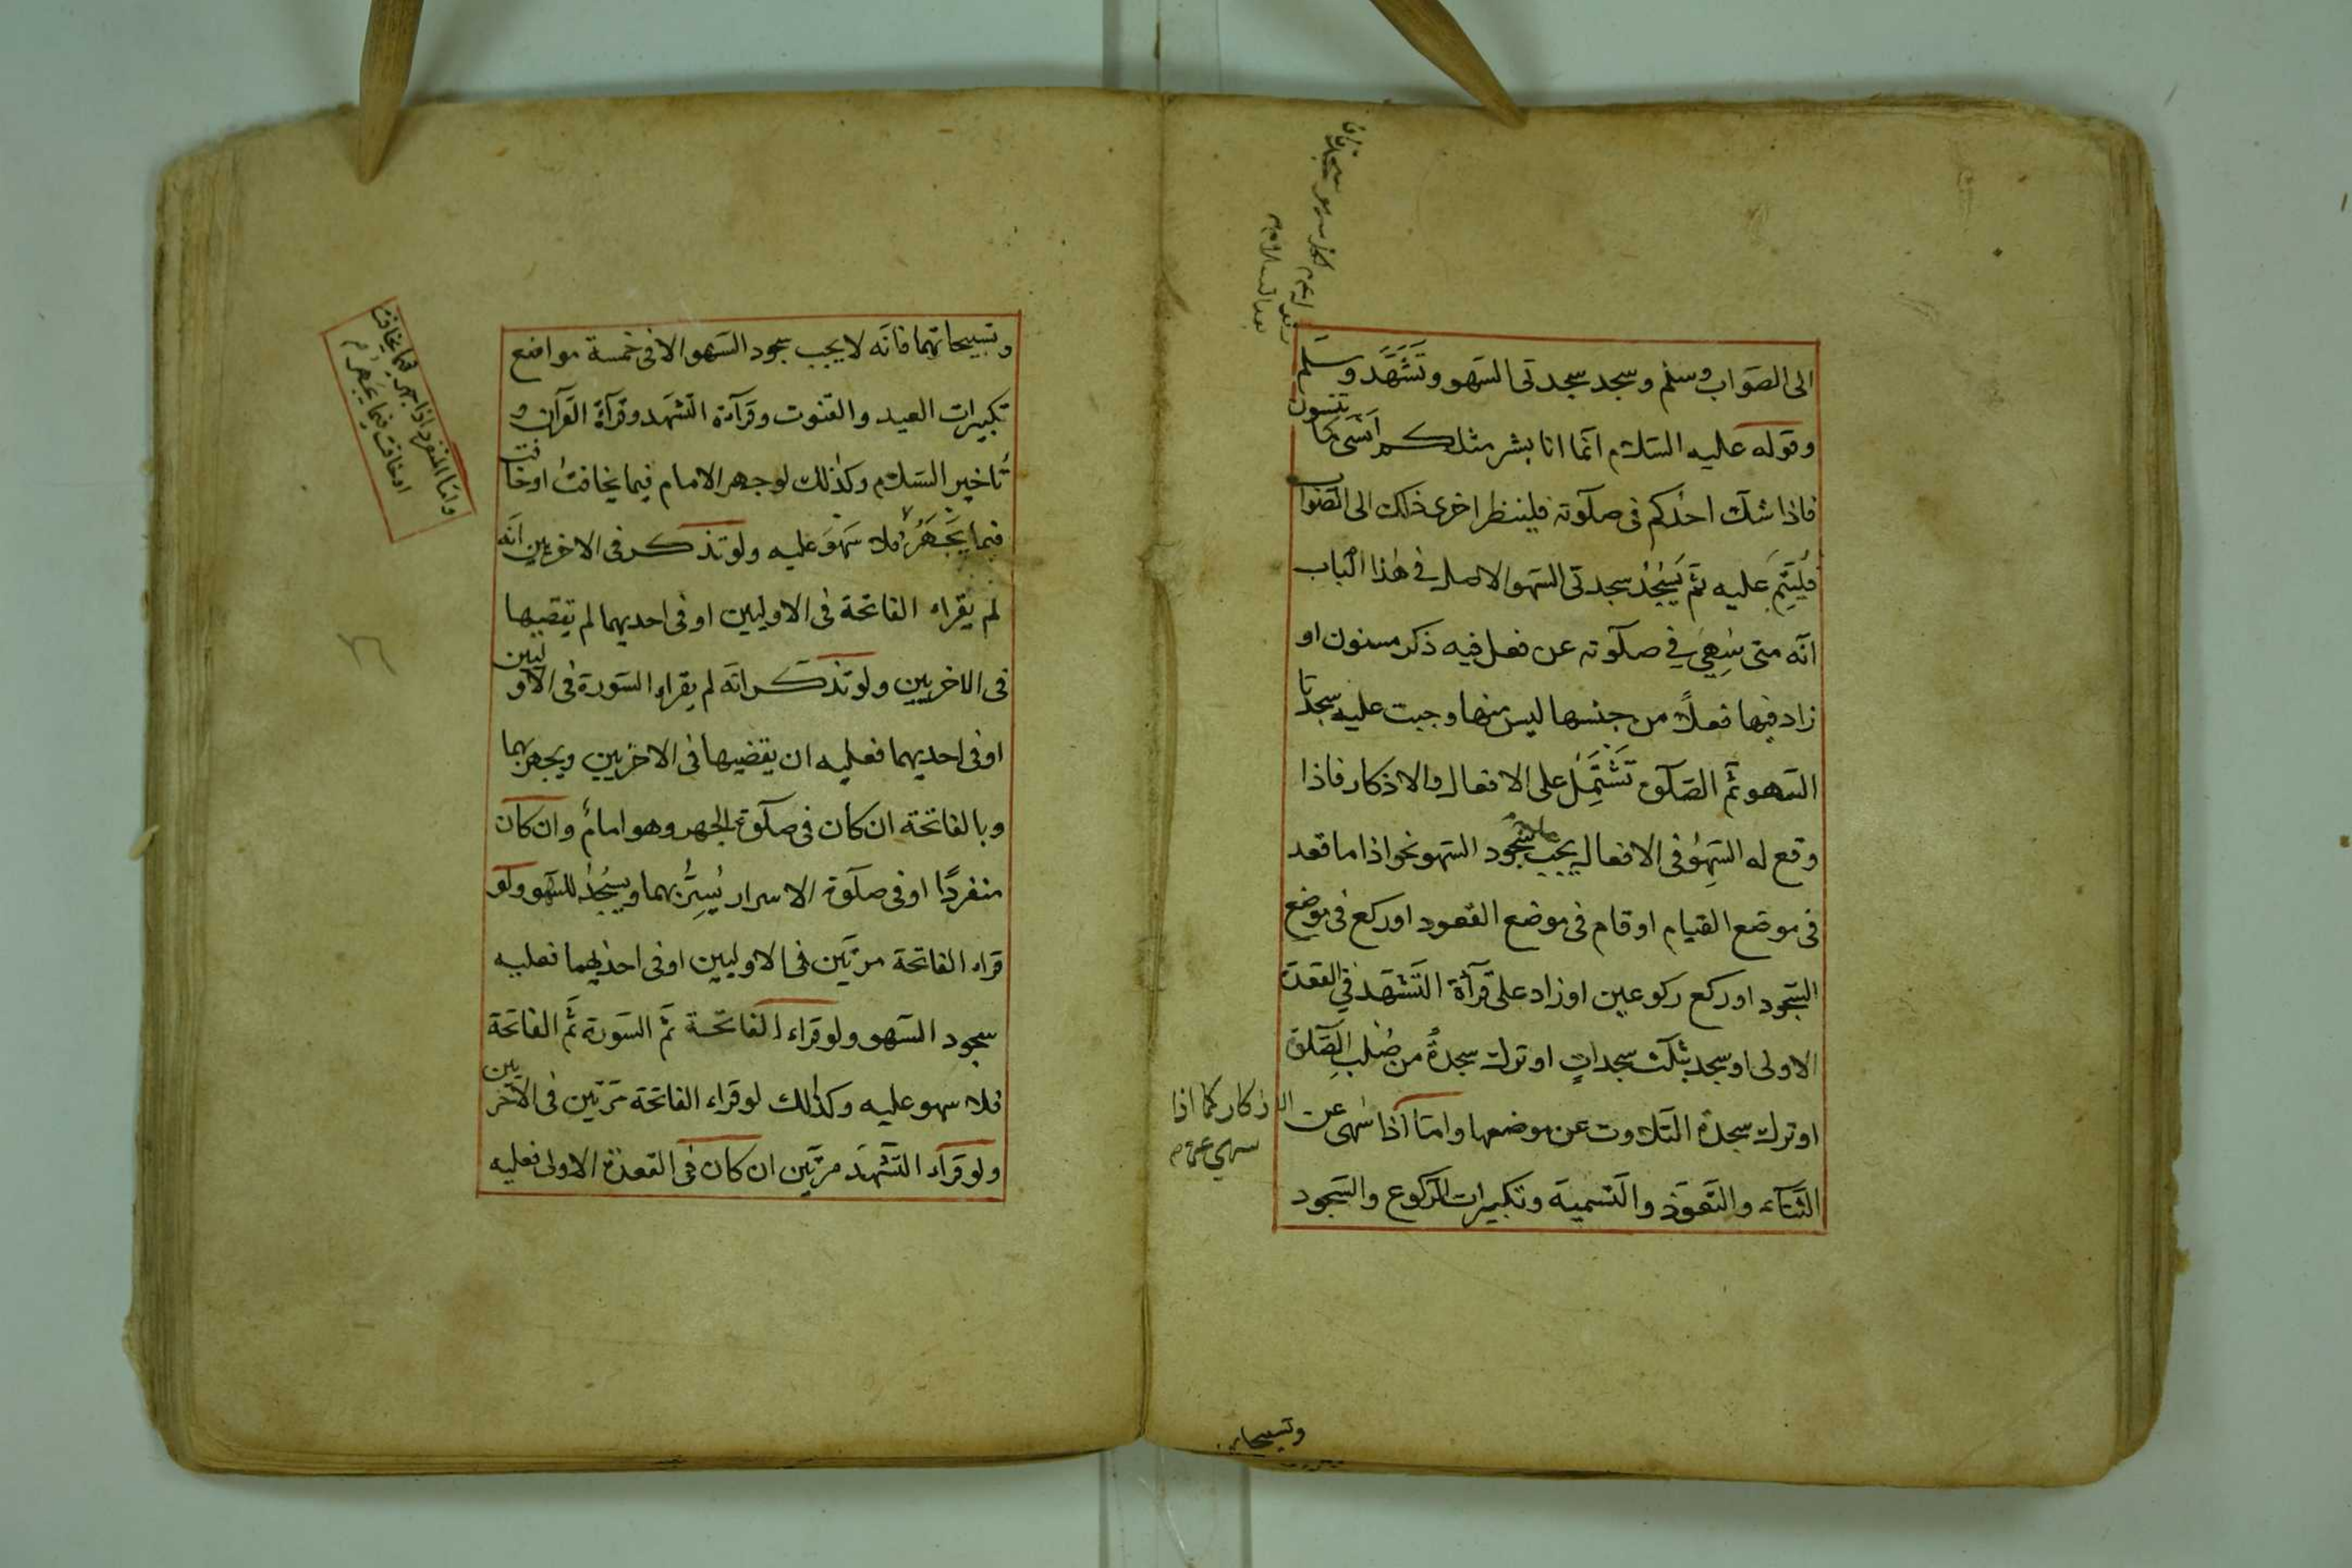 الى الصواب وسلم وسجد سجدتى السهو وتشهد وسلم
وقوله عليه السلام انما انا بشر مثلكم انسى كما تنسون
فاذا شك احدكم فى صلوته فلينظر احرى ذلك الى الصواب
فليتم عليه ثم يسجد سجدتى السهو الاصل فى هذا الباب
انه متى سهى فى صلوته عن فعل فيه ذكر مسنون او
زاد فيها فعلا من جنسها ليس منها وجبت عليه سجدتا
السهو ثم الصلوة تشتمل على الافعال والاذكار فاذا
وقع له السهو فى الافعال يجب عليه سجود السهو نحو اذا ما قعد
فى موضع القيام او قام فى موضع القعود او ركع فى موضع
السجود او ركع ركوعين او زاد على قرآءة التشهد فى القعدة
الاولى او سجد ثلث سجدات او ترك سجدة من صلب الصلوة
او ترك سجدة التلاوت عن موضعها واما اذا سهى عن
الاذكار كما اذا
سهى عن
الثنآء والتعوذ والتسمية وتكبيرات الركوع والسجود
وتسبيحاتهما
وتسبيحاتهما فانه لا يجب سجود السهو الا فى خمسة مواضع
تكبيرات العيد والقنوت وقرآءة التشهد وقرآءة القرآن و
تاخير السلام وكذلك لو جهر الامام فيما يخافت او خافت
فيما يجهر فلا سهو عليه ولو تذكر فى الاخريين انه
واما المنفرد اذا جهر فيما يخافت
او خافت فيما يجهر
لم يقراء الفاتحة فى الاوليين او فى احديهما لم يقضيها
فى الاخريين ولو تذكر انه لم يقراء السورة فى الاوليين
او فى احديهما فعليه ان يقضيها فى الاخريين ويجهر بها
وبالفاتحة ان كان فى صلوة الجهر وهو امام وان كان
منفردا او فى صلوة الاسرار يسر بهما ويسجد للسهو ولو
قراء الفاتحة مرتين فى الاوليين او فى احديهما فعليه
سجود السهو ولو قراء الفاتحة ثم السورة ثم الفاتحة
فلا سهو عليه وكذلك لو قراء الفاتحة مرتين فى الاخريين
ولو قراء التشهد مرتين ان كان فى القعدة الاولى فعليه